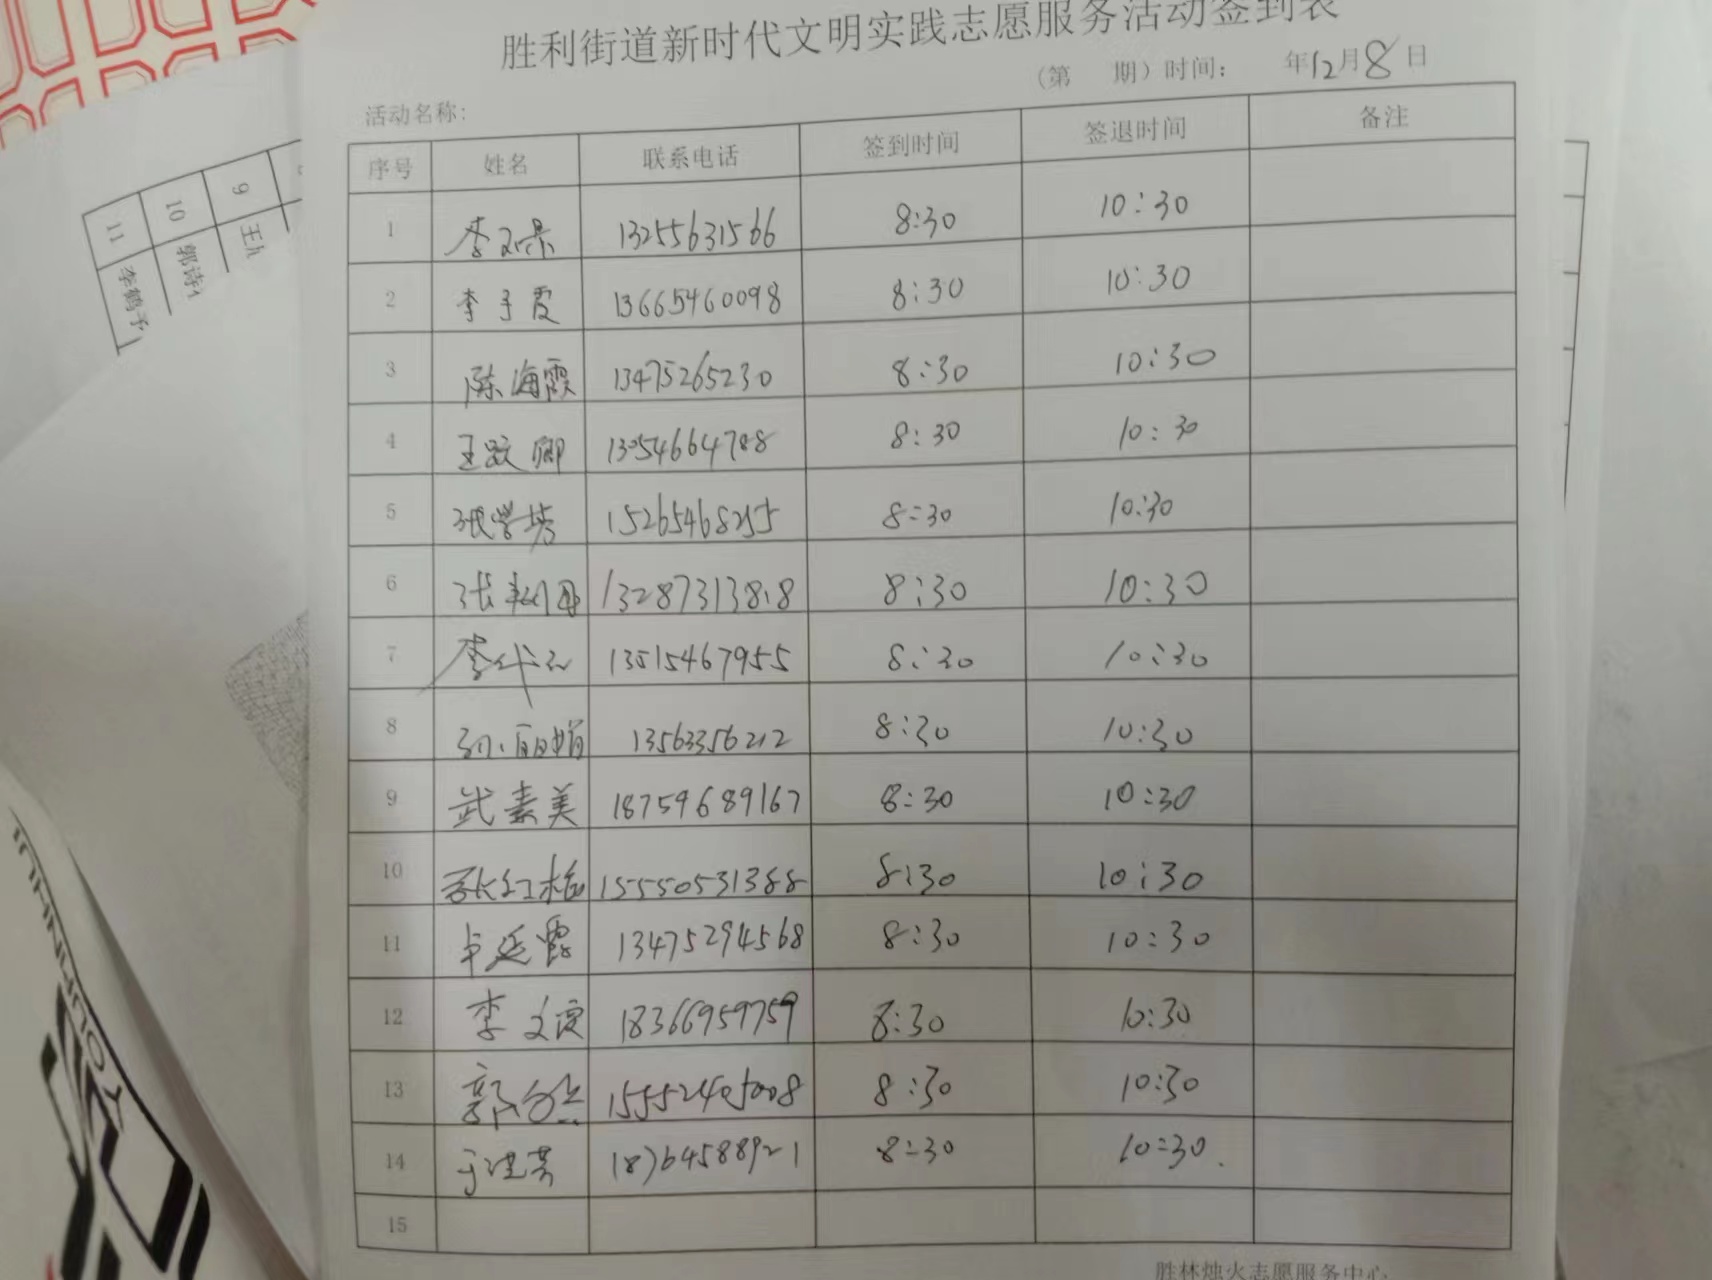 胜利街道新时代文明实践志愿服务活动签到表
(第 期)时间： 年12月8日
活动名称：
序号 姓名 联系电话 签到时间 签退时间 备注
1 李 13255631566 8:30 10:30
2 李 霞 13665460098 8:30 10:30
3 陈海霞 13475265230 8:30 10:30
4 王 卿 13054664788 8:30 10:30
5 张学 15265468255 8:30 10:30
6 张 13287313818 8:30 10:30
7 李 13515467955 8:30 10:30
8 孙丽娟 13563356212 8:30 10:30
9 武素美 18759689167 8:30 10:30
10 张红 15550531388 8:30 10:30
11 延霞 13475294568 8:30 10:30
12 李文 18366959759 8:30 10:30
13 郭 15552405008 8:30 10:30
14 于 18764588921 8:30 10:30
15
胜林烛火志愿服务中心
9 王
10 郭诗
11 李鹤予